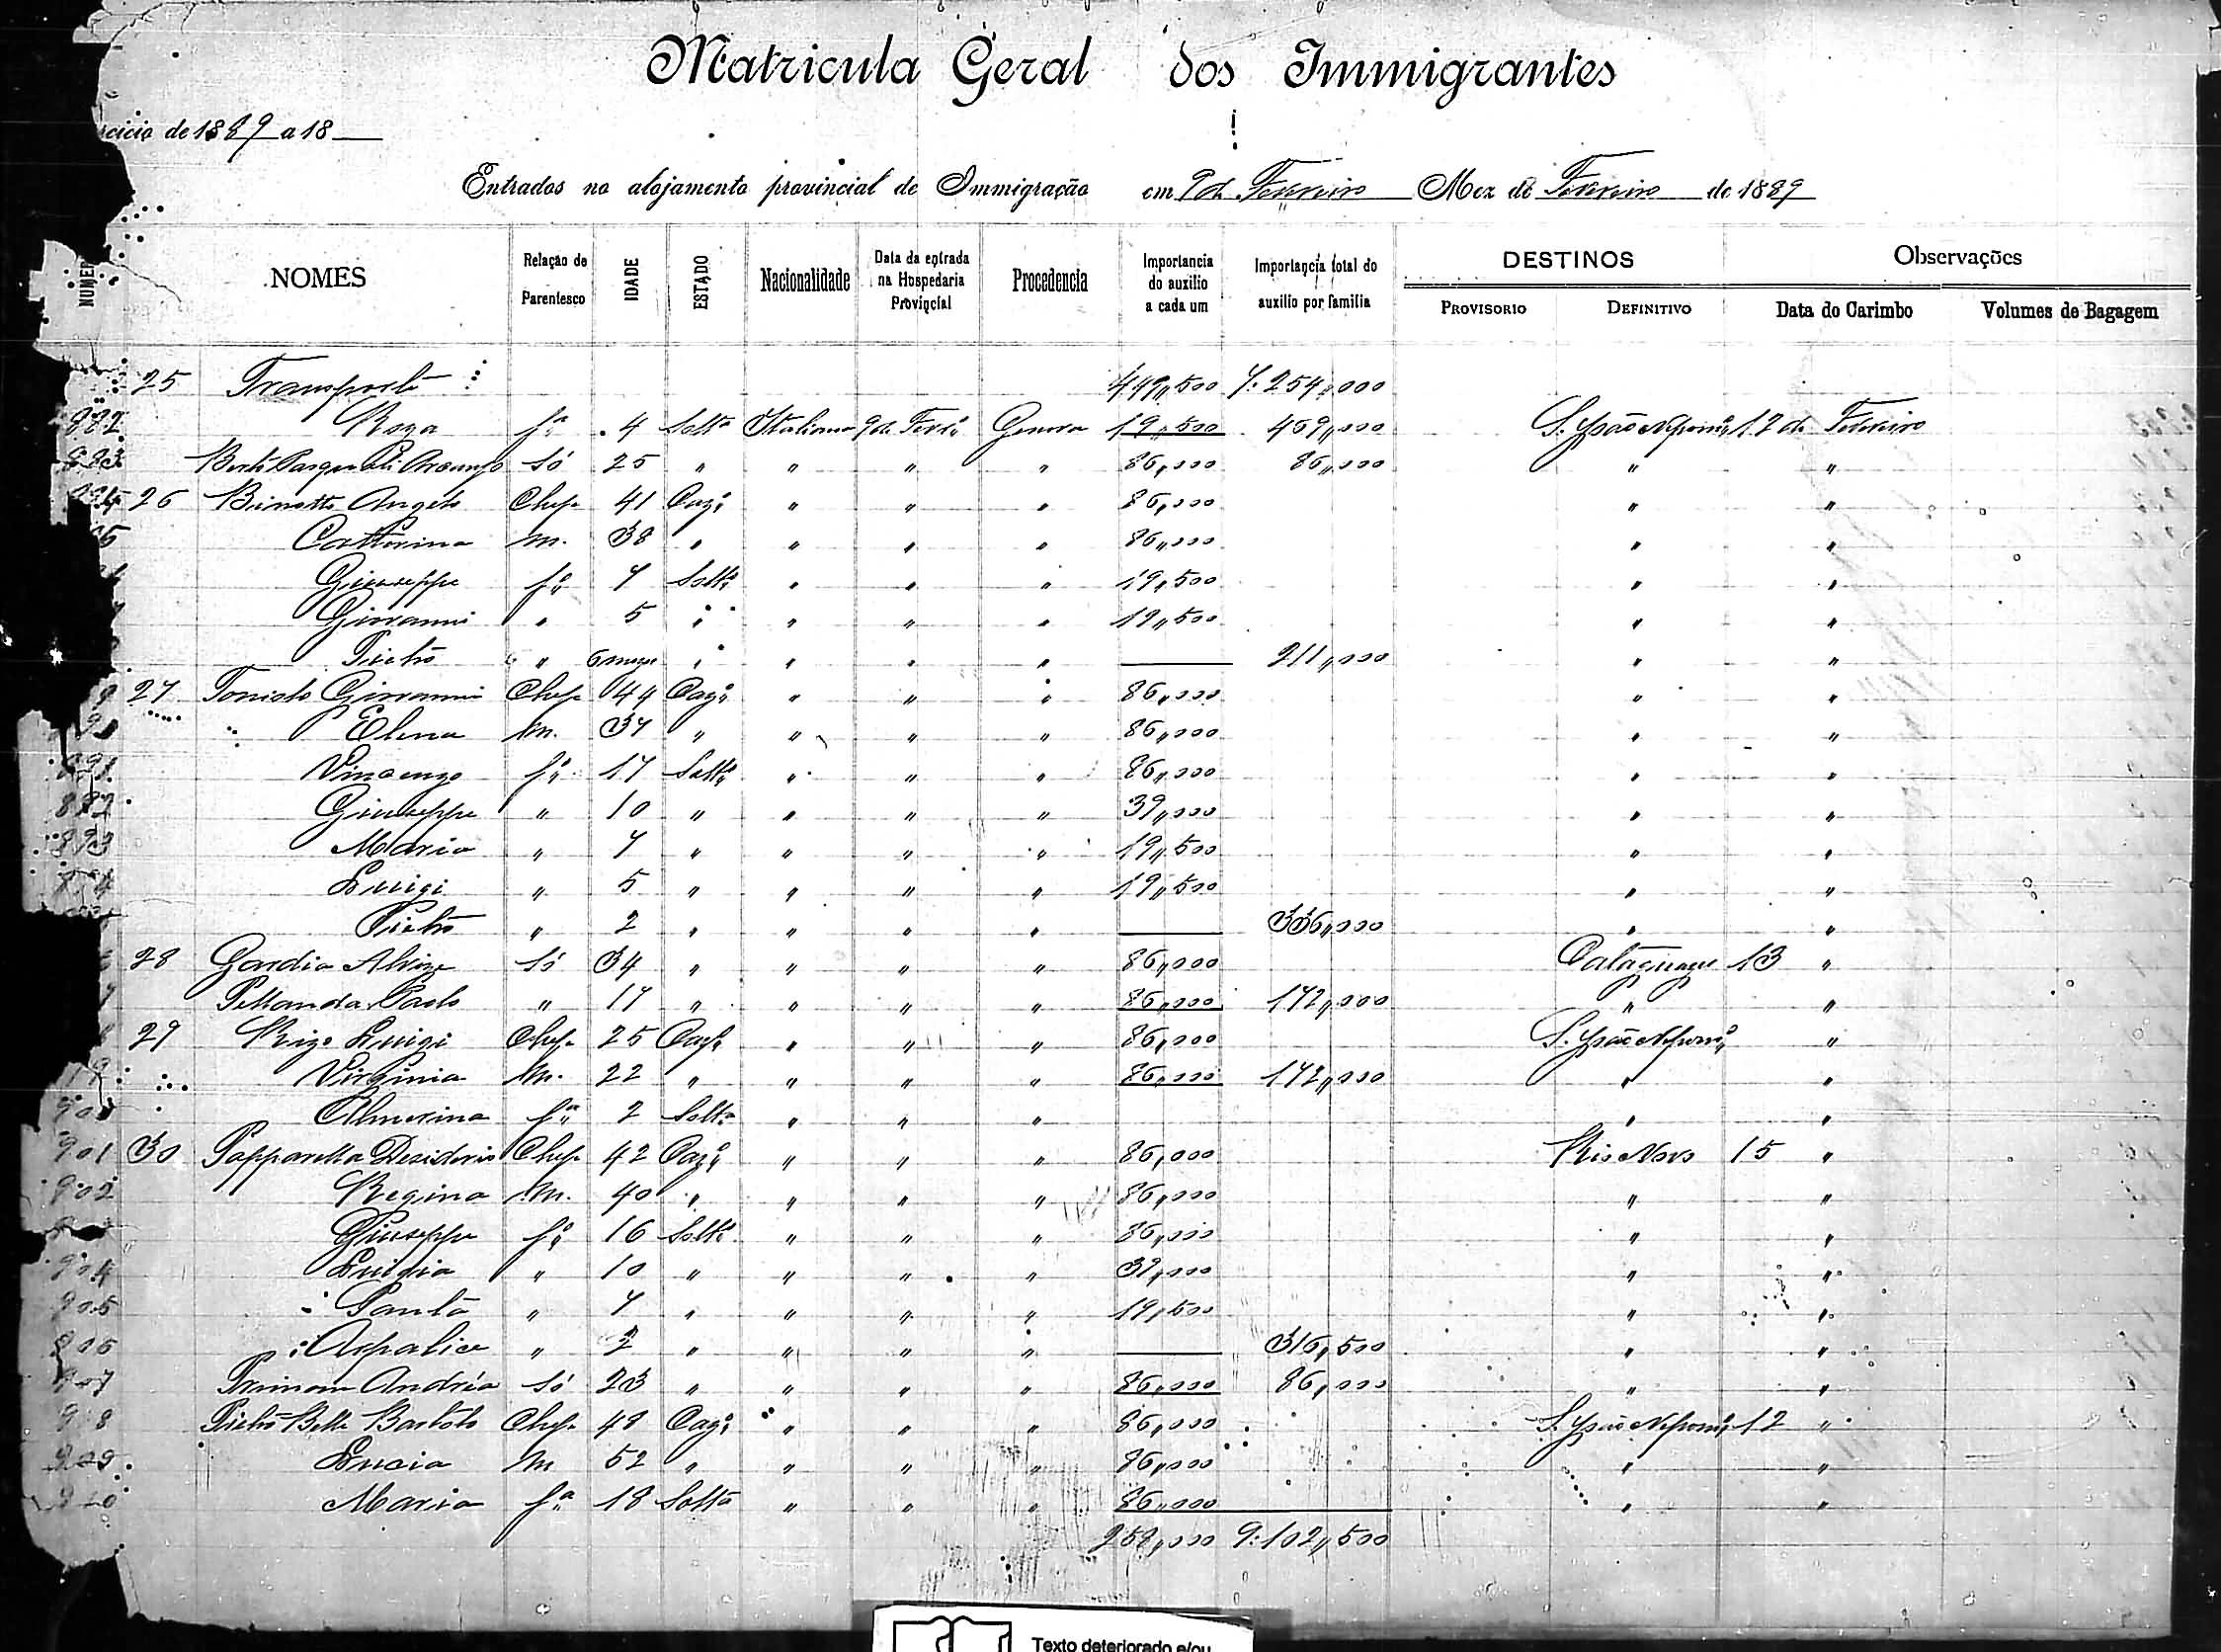 Matricula Geral dos Immigrantes
rcicio de 1889 a 18
Entrados no alojamento provincial de Immigração em 9 de Fevereiro Mez de Fevereiro de 1889
NUMER NOMES Relação de Parentesco IDADE ESTADO Nacionalidade Data da entrada na Hospedaria Provincial Procedencia Importancia do auxilio a cada um Importancia total do auxilio por familia DESTINOS PROVISORIO DEFINITIVO Observações Data do Carimbo Volumes de Bagagem
25 Transporte 449,,500 7:254,,000
882 Roza fª 4 Soltª Italiana 9 de Fevº Genova 19,,500 459,,000 S. João Nepomº 12 de Fevereiro
883 só 25 " " " " 86,,000 86,,000 " "
26 Angelo Chefe 41 Cazº " " " 86,,000 " "
Catterina m. 38 " " " " 86,,000 " "
Giuseppe fº 7 Soltº " " " 19,,500 " "
Giovanni " 5 " " " " 19,,500 " "
Pietro " 6 mezes " " " " 211,,000 " "
27 Giovanni Chefe 44 Cazº " " " 86,,000 " "
Elena m. 37 " " " " 86,,000 " "
891 Vincenzo fº 17 Soltº " " " 86,,000 " "
892 Giuseppe " 10 " " " " 39,,000 " "
893 Maria " 7 " " " " 19,,500 " "
Luigi " 5 " " " " 19,,500 " "
Pietro " 2 " " " " 336,,000 " "
28 Gardia só 34 " " " " 86,,000 13 "
Paolo " 17 " " " " 86,,000 172,,000 " "
29 Luigi Chefe 25 Cazº " " " 86,,000 S. João Nepomº "
Virginia m. 22 " " " " 86,,000 172,,000 " "
900 Almerina fª 2 Soltª " " " " "
901 30 Papparella Desiderio Chefe 42 Cazº " " " 86,000 Rio Novo 15 "
902 Regina m. 40 " " " " 86,,000 " "
Giuseppe fº 16 Soltº " " " 86,,000 " "
904 Luigia " 10 " " " " 39,,000 " "
905 Santo " 7 " " " " 19,500 " "
906 " 2 " " " " 316,500 " "
907 Andréa só 23 " " " " 86,000 86,000 " "
908 Chefe 48 Cazº " " " 86,000 S. João Nepomº 12 "
909 Lucia m 52 " " " " 86,,000 " "
910 Maria fª 18 Soltª " " " 86,,000 " "
258,,000 9:102,,500
Texto deteriorado e/ou